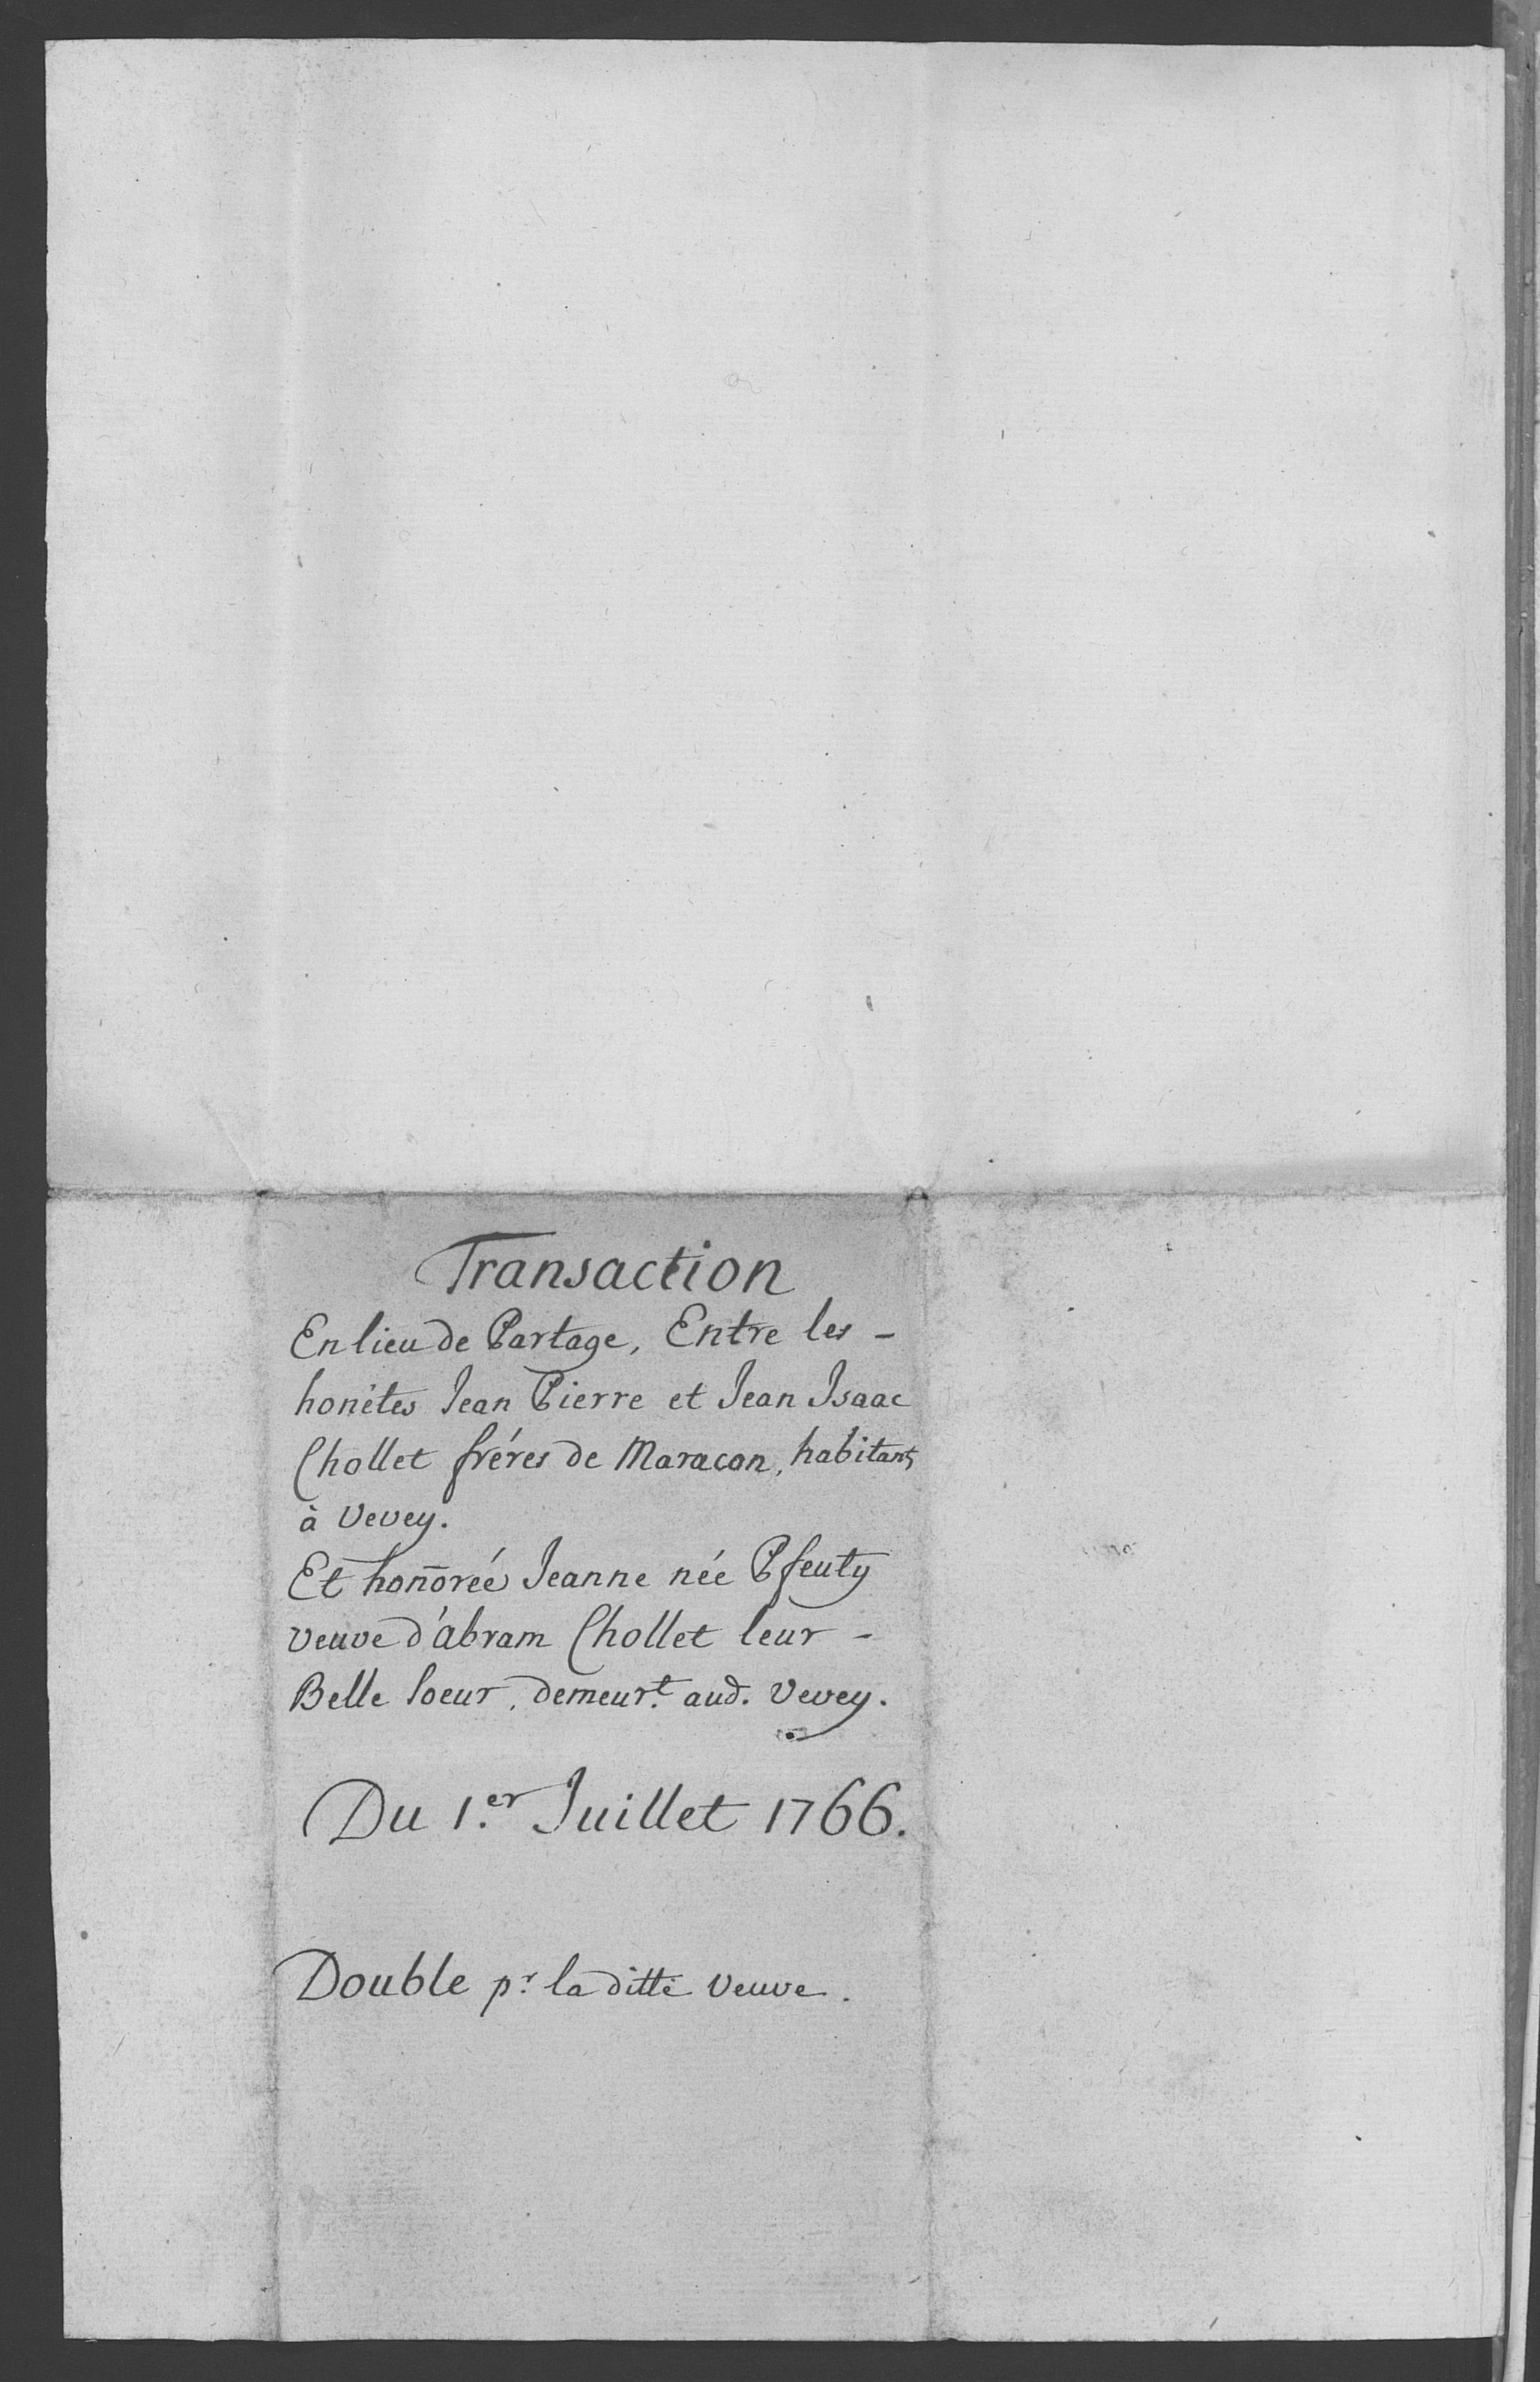 Transaction
En lieu de Partage, Entre les -
honêtes Jean Pierre et Jean Isaac
Chollet fréres de Maracon, habitants
à Vevey.
Et hon̄orée Jeanne née Pfeuty
veuve d'abram Chollet leur -
Belle Soeur, demeur.t aud. Vevey.
Du 1.er Juillet 1766.
Double p.r la ditte Veuve.